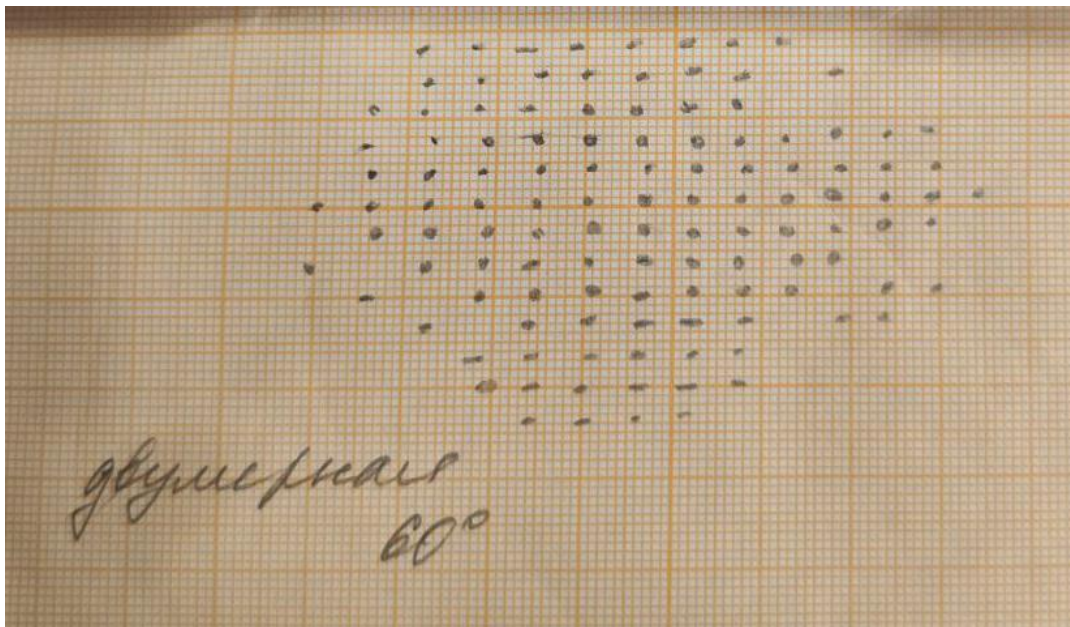 двумерная
60°